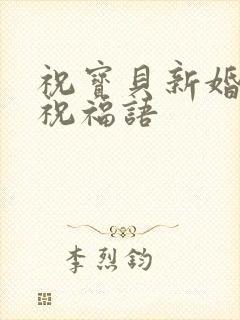 祝寶貝新婚
祝福語
李烈鈞